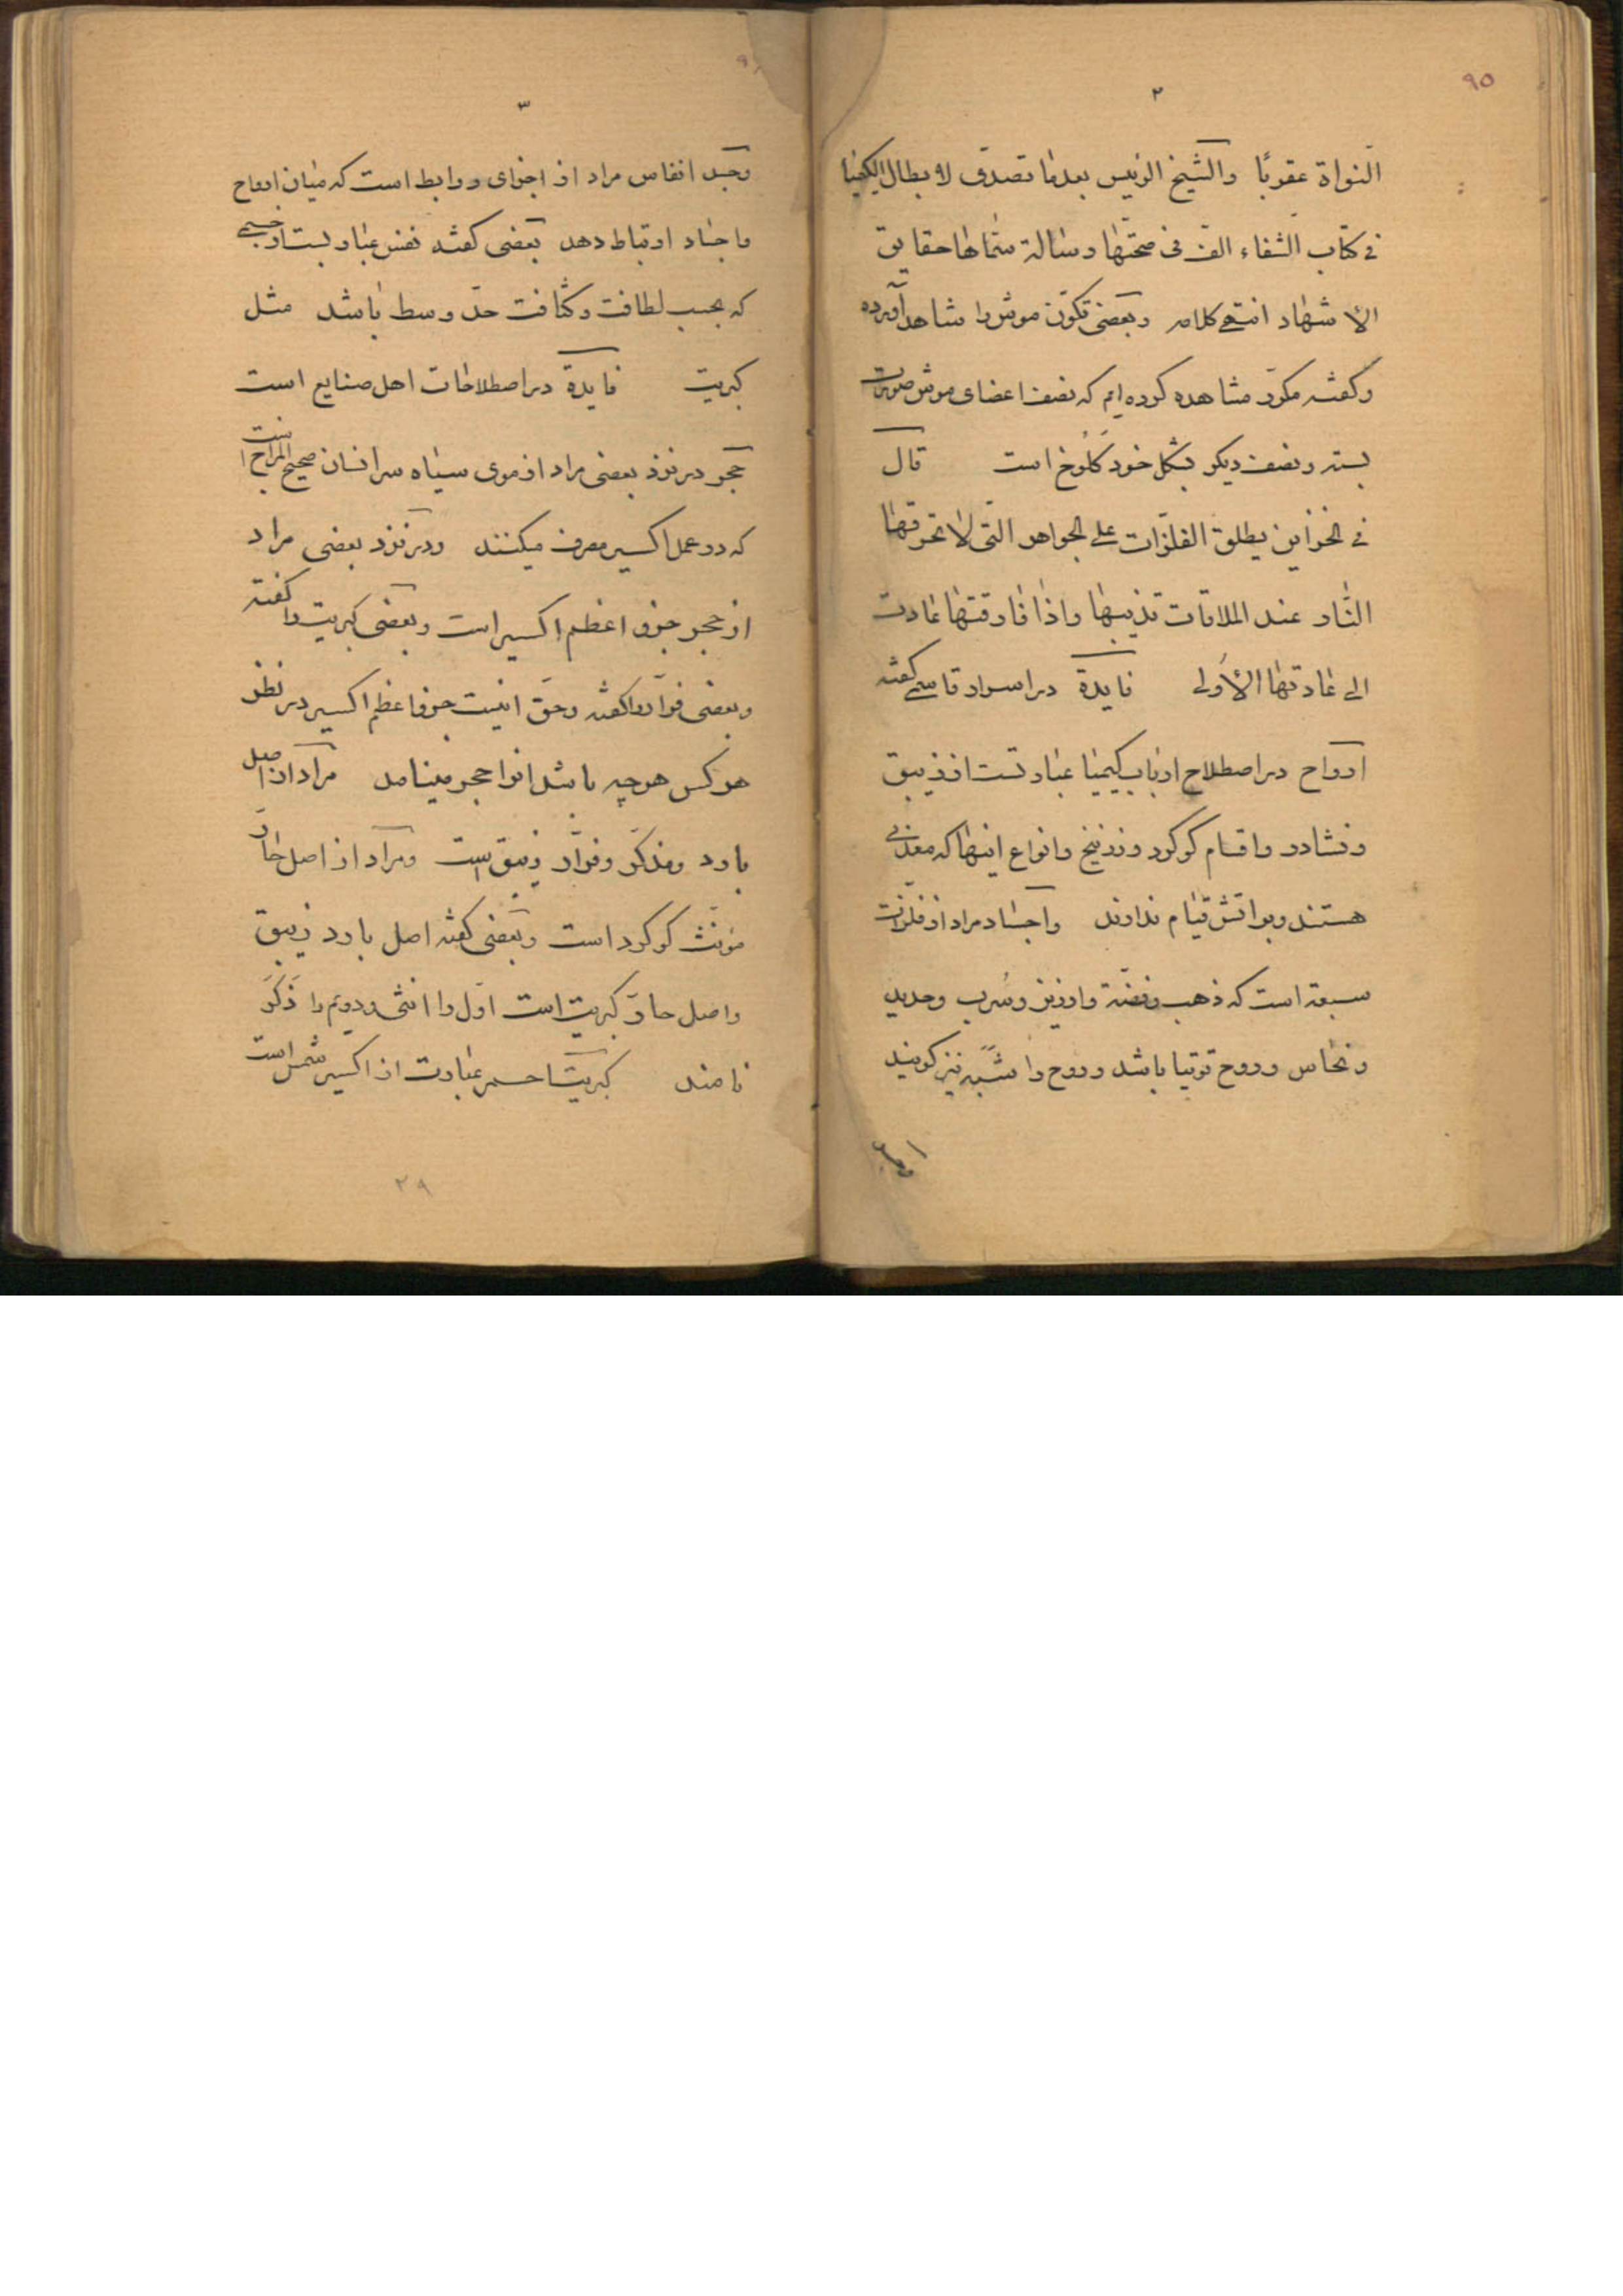 ٩٥
٢
النواة عقربًا والشیخ الرئیس بعدما تصدّی لابطال الکیمیا
فی کتاب الشفاء الف فی صحتها رسالة سمّاها حقایق
الاشهاد انتهی کلامه وبعضی تکوّن موش را شاهد آورده
وگفته مکرّر مشاهده کرده‌ایم که نصف اعضای موش صورت
بسته ونصف دیگر بشکل خود کلوخ است قال
فی الخزاین یطلق الفلزّات علی الجواهر التّی لا تحرقها
النّار عند الملاقات تذیبها واذا فارقتها عادت
الی عادتها الأولی فایدة در اسرار قاسمی گفته
ارواح در اصطلاح ارباب کیمیا عبارتست از زیبق
ونشادر واقسام گوگرد وزرنیخ وانواع اینها که معدنی
هستند وبر اتش قیام ندارند واجساد مراد از فلزّات
سبعة است که ذهب وفضّة وارزیز وسُرب وحدید
ونحاس وروح توتیا باشد وروح را شبه نیز گویند
٣
وجسد انفاس مراد از اجزای روابط است که میان ارواح
واجساد ارتباط دهد بعضی گفته نفس عبارتست از جسمی
که بحسب لطافت وکثافت حدّ وسط باشد مثل
کبریت فایدة در اصطلاحات اهل صنایع است
حجر در نزد بعضی مراد از موی سیاه سر انسان صحیح المزاج است
که در عمل اکسیر مصرف میکنند ودر نزد بعضی مراد
از حجر جزو اعظم اکسیر است وبعضی کبریت را گفته
وبعضی فرّار را گفته وحق اینست جزو اعظم اکسیر در نظر
هر کس هر چه باشد انرا حجر مینامد مراد از اصل
بارد ومذکّر وفرّار زیبق است ومراد از اصل حارّ
مؤنّث گوگرد است وبعضی گفته اصل بارد زیبق
واصل حارّ کبریت است اوّل را انثی ودویّم را ذَکَر
نامند کبریت احمر عبارت از اکسیر شمس است
٢٩